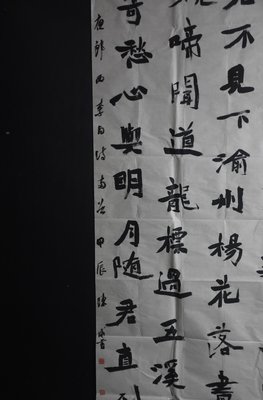 君不見下渝州楊花落
啼聞道龍標過五溪
寄愁心與明月隨君直到
夜郎西李白詩兩首甲辰